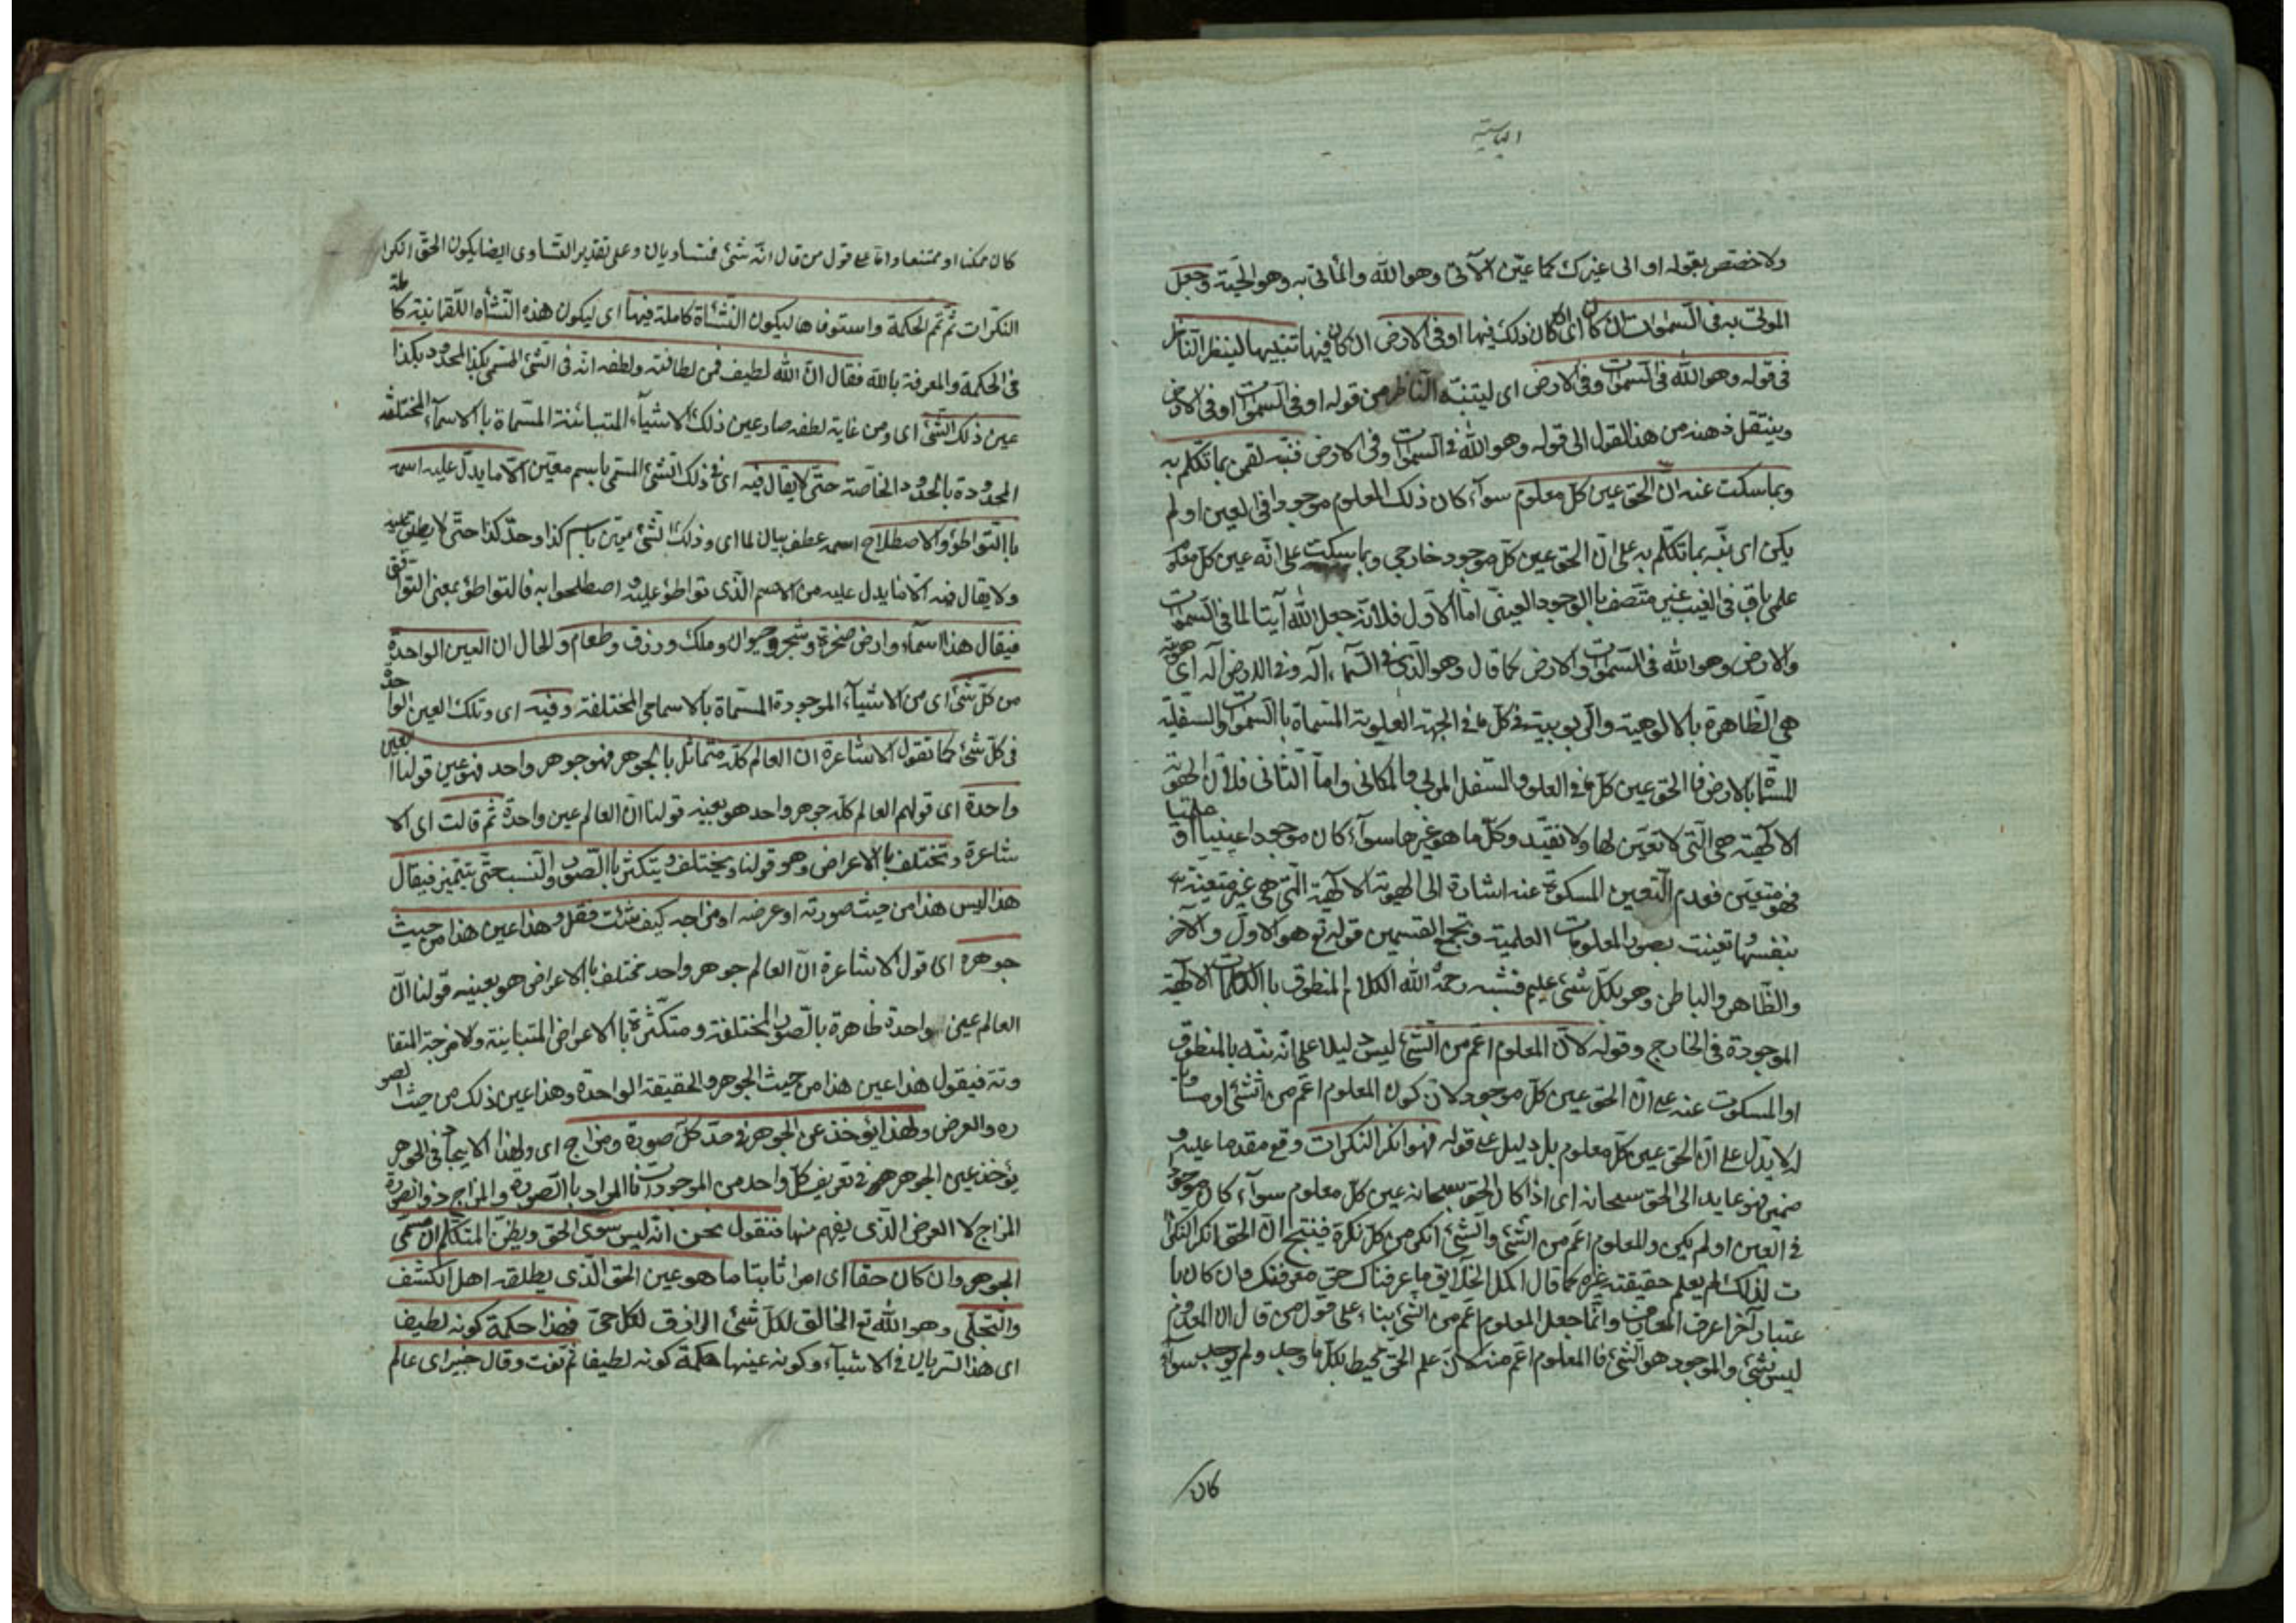 الياسية
ولا خصص بقوله او الى غيرك كما عيّن الآتى وهو الله والمأتى به وهو الحبّة وجعل
المولى به فى السموات ان كان اى ان كان ذلك فيها او فى الارض ان كان فيها تنبيها لينظر الناظر
فى قوله وهو الله فى السموات وفى الارض اى ليتنبّه الناظر من قوله او فى السموات او فى الارض
وينتقل ذهنه من هذا القول الى قوله وهو الله فى السموات وفى الارض فنبّه لقمن بما تكلم به
وبما سكت عنه انّ الحق عين كل معلوم سوآء كان ذلك المعلوم موجودا فى العين او لم
يكن اى نبّه بما تكلّم به على انّ الحق عين كلّ موجود خارجى وبما سكت على انّه عين كل معلو
علمى باق فى الغيب غير متّصف باالوجود العينى امّا الاول فلانّه جعل الله آيتا لما فى السموات
والارض وهو الله فى السموات والارض كما قال وهو الذى فى السّماء اله وفى الارض اله اى هويته
هى الظاهرة بالالوهية والربوبية فى كل ما فى الجهة العلوية المسماة باالسموات والسفلية
المسمّاة بالارض فاالحق عين كل ما فى العلو والسّفل المولى والمكانى وامّا الثانى فلانّ الهوية
الالهية هى التى لا تعيّن لها ولا تقيّد وكلّ ما هو غيرها سوآء كان موجودا عينيا او علميّا
فهو متعيّن فعدم التعيين المسكوت عنه اشارة الى الهوية الالهية التى هى غير متعيّنة
بنفسها وتعينت بصور المعلومات العلمية وتجمع القسمين قوله تع هو الاوّل والآخر
والظّاهر والباطن وهو بكلّ شئ عليم فشبه رحمه الله الكلام المنطوق باالكلمات الالهية
الموجودة فى الخارج وقوله لانّ المعلوم اعمّ من الشئ ليس دليلا على انّه نبّه بالمنطوق
او المسكوت عنه على انّ الحق عين كلّ موجود لانّ كون المعلوم اعمّ من الشئ او مساويا
له لا يدّل على انّ الحق عين كلّ معلوم بل دليل على قوله فهو انكر النكرات وقع مقدما عليه و
ضمير فهو عايد الى الحق سبحانه اى اذا كان الحق سبحانه عين كلّ معلوم سوآء كان موجودا
فى العين او لم يكن والمعلوم اعمّ من الشّئ والشّئ انكر من كلّ نكرة فينتج انّ الحق انكر النّكرا
ت لذلك لم يعلم حقيقته غيره كما قال اكمل الخلايق ما عرفناك حق معرفتك وان كان با
عتبار آخر اعرف المعارف وانّما جعل المعلوم اعّم من الشئ بناء على قول من قال ان المعدوم
ليس بشئ والموجود هو الشئ فاالمعلوم اعمّ منه لانّ علم الحق محيط بكلّ ما وجد ولم يوجد سوآء
كان
كان ممكنا او ممتنعا وامّا على قول من قال انّه شئ فمتساويان وعلى تقدير التّساوى ايضا يكون الحقّ انكرا
النكرات ثم تمم الحكمة واستوفاها ليكون النشاة كاملة فيها اى ليكون هذه النّشأه اللّقمانية كا ملة
فى الحكمة والمعرفة باالله فقال انّ الله لطيف فمن لطافته ولطفه انّه فى الشئ المسمّى بكذا المحدود بكذا
عين ذلك الشّئ اى ومن غاية لطفه صار عين ذلك الاشيآء المتبائنة المسّماة باالاسمآء المختلفه
المحدودة بالحدود الخاصّة حتّى لا يقال فيه اى فى ذلك الشئ المسمّى باسم معيّن الّا ما يدلّ عليه اسمه
باالتواطؤ والاصطلاح اسمه عطف بيان لما اى وذلك الشئ تميّن باسم كذا وحدّ كذا حتّى لا يطلق عليه
ولا يقال فيه الّا ما يدل عليه من الاسم الّذى تواطؤ عليه و اصطلحوا به فالتواطؤ بمعنى التوا فق
فيقال هذا اسمآء وارض صخرة وشجر وحيوان وملك ورزق وطعام والحال ان العين الواحدة
من كلّ شئ اى من الاشيآء الموجودة المسّماة بالاسامى المختلفة وفيه اى وتلك العين الوا حدة
فى كلّ شئ كما تقول الاشاعرة ان العالم كلّه متماثل بالجوهر فهو جوهر واحد فهو عين قولنا العين
واحدة اى قولهم العالم كلّه جوهر واحد هو بعينه قولنا انّ العالم عين واحدة ثمّ قالت اى الا
شاعرة وتختلف باالاعراض وهو قولنا ويختلف ويتكثر باالصّور والنّسب حتّى يتميّز فيقال
هذا ليس هذا من حيث صورته او عرضه او مزاجه كيف شئت فقل وهذا عين هذا من حيث
جوهره اى قول الاشاعرة انّ العالم جوهر واحد مختلف باالاعراض هو بعينه قولنا انّ
العالم عين واحدة ظاهرة بالصّور المختلفة ومتكثّرة باالاعراض المتباينة والامزجة المتفا
وتة فيقول هذا عين هذا من حيث الجوهر والحقيقة الواحدة وهذا عين ذلك من حيث الصو
ره والعرض ولهذا يؤخذ عن الجوهر فى حدّ كلّ صورة ومزاج اى ولهذا الايجاد فى الجوهر
يؤخذ عين الجوهر فى تعريف كلّ واحد من الموجودات فاالمراد باالصورة والمزاج ذو الصّورة
المزاج لا العرض الّذى يفهم منها فنقول نحن انّه ليس سوى الحق ويظنّ المتكلّم انّ مسمّى
الجوهر وان كان حقا اى امرا ثابتا ما هو عين الحق الّذى يطلقه اهل الكشف
والتجلّى وهو الله تع الخالق لكلّ شئ الرازق لكل حىّ فهذا حكمة كونه لطيفا
اى هذا السّريان فى الاشيآء وكونه عينها حكمة كونه لطيفا ثم نعت وقال خبير اى عالم